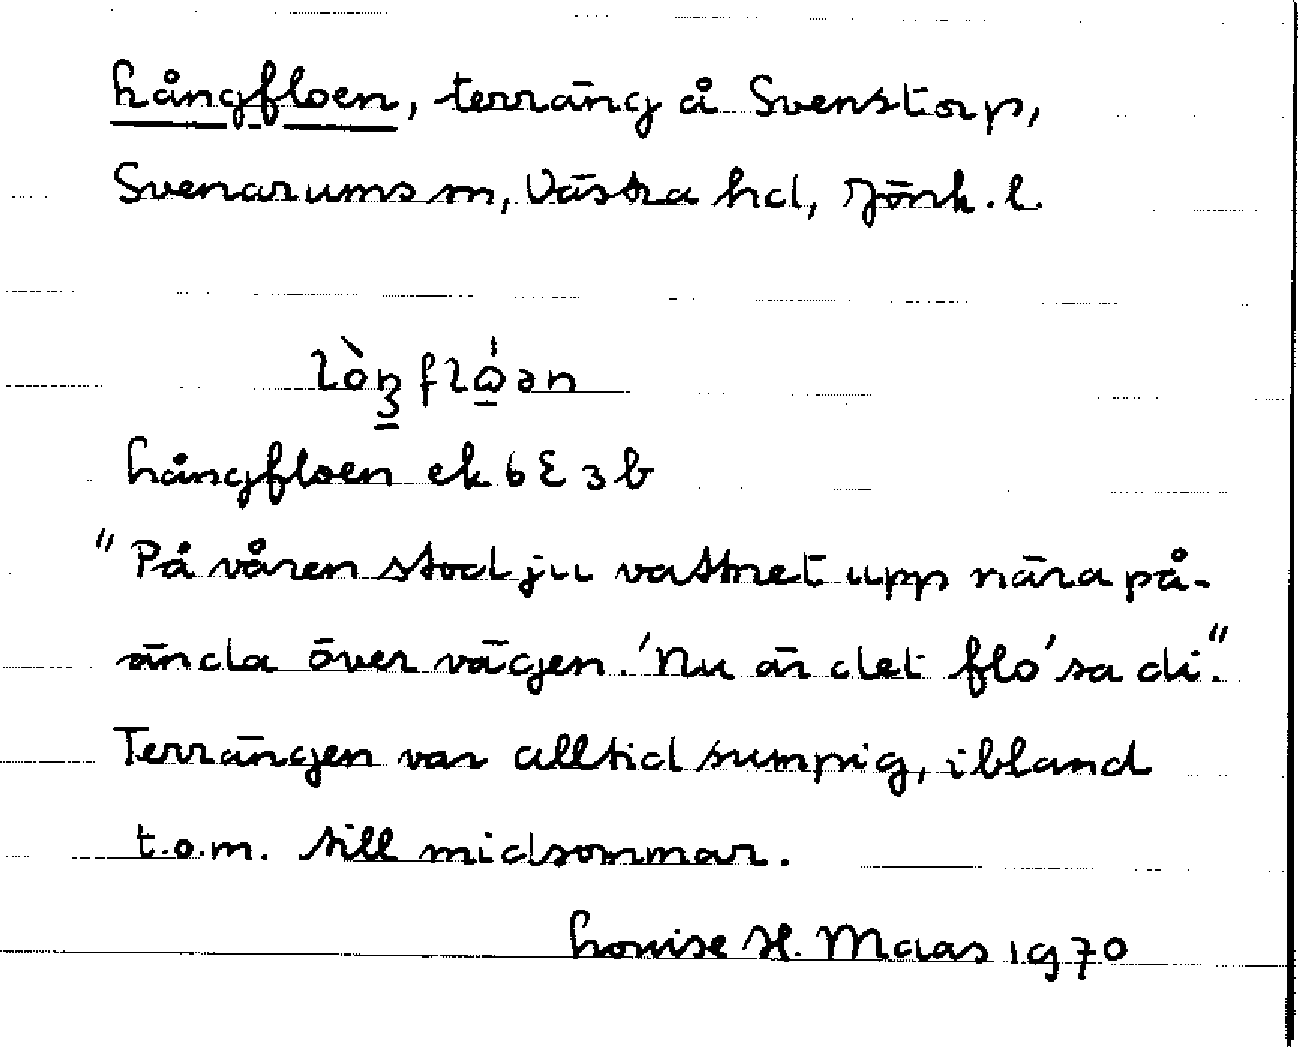 Långfloen, terräng å Svenstorp,
Svenarums sn, Västra hd, Jönk. l.
lòŋflω̇́ən
Långfloen ek 6E3b
"På våren stod ju vattnet upp nära på-
ända över vägen. 'Nu är det flo' sa di."
Terrängen var alltid sumpig, ibland
t.o.m. till midsommar.
Louise H. Maas 1970